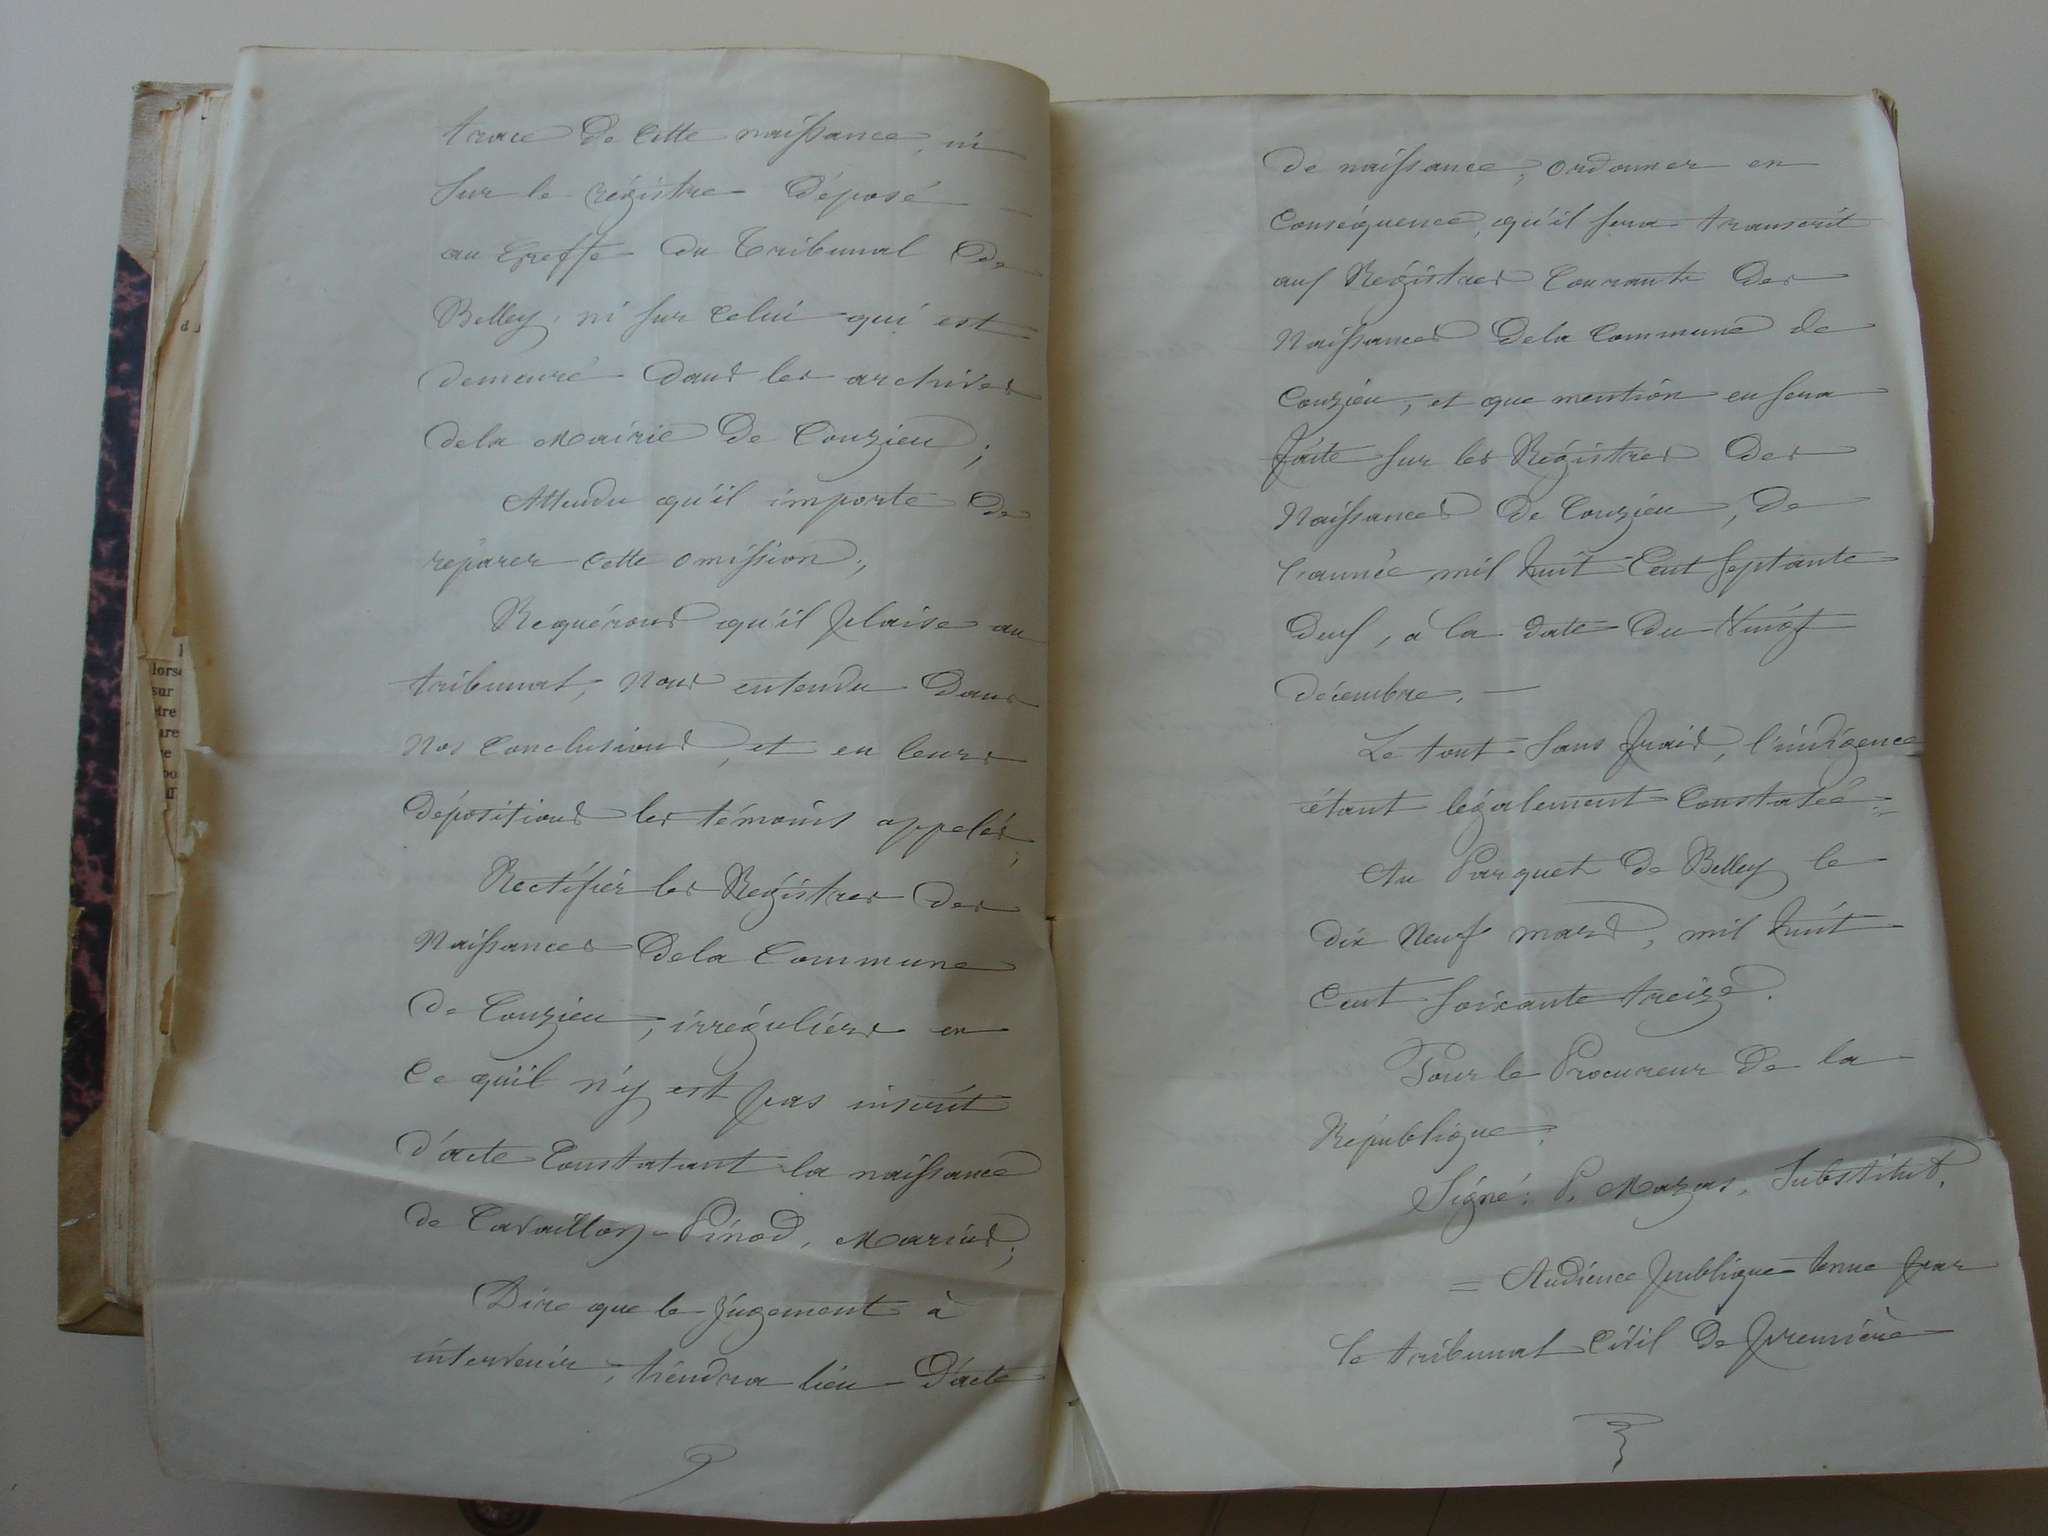 trace de cette naissance, ni
sur le régistre déposé
au Greffe du Tribunal de
Belley, ni sur celui qui est
demeuré dans les archives
dela Mairie de Conzieu;
Attendu qu'il importe de
réparer cette omission;
Requérons qu'il plaise au
tribunal, nous entendu dans
nos conclusions, et en leurs
dépositions les témoins appelés;
Rectifier les Régistres des
Naissances dela Commune
de Conzieu, irréguliers en
ce qu'il n'y est pas inscrit
d'acte constatant la naissance
de Cavaillon-Pinod, Marius;
Dire que le jugement à
intervenir, tiendra lieu d'acte
de naissance; ordonner en
conséquence, qu'il sera transcrit
aux Régistres courants des
Naissances dela Commune de
Conzieu, et que mention en sera
faite sur les Régistres des
Naissances de Conzieu, de
l'année mil huit cent septante
deux, à la date du Vingt
décembre.
Le tout sans frais, l'indigence
étant légalement constatée.
Au Parquet de Belley le
dix neuf mars, mil huit
cent soixante treize.
Pour le Procureur de la
République.
Signé: P. Mazas, Substitut.
= Audience publique tenue par
le tribunal civil de première
lorsq
sur
etre